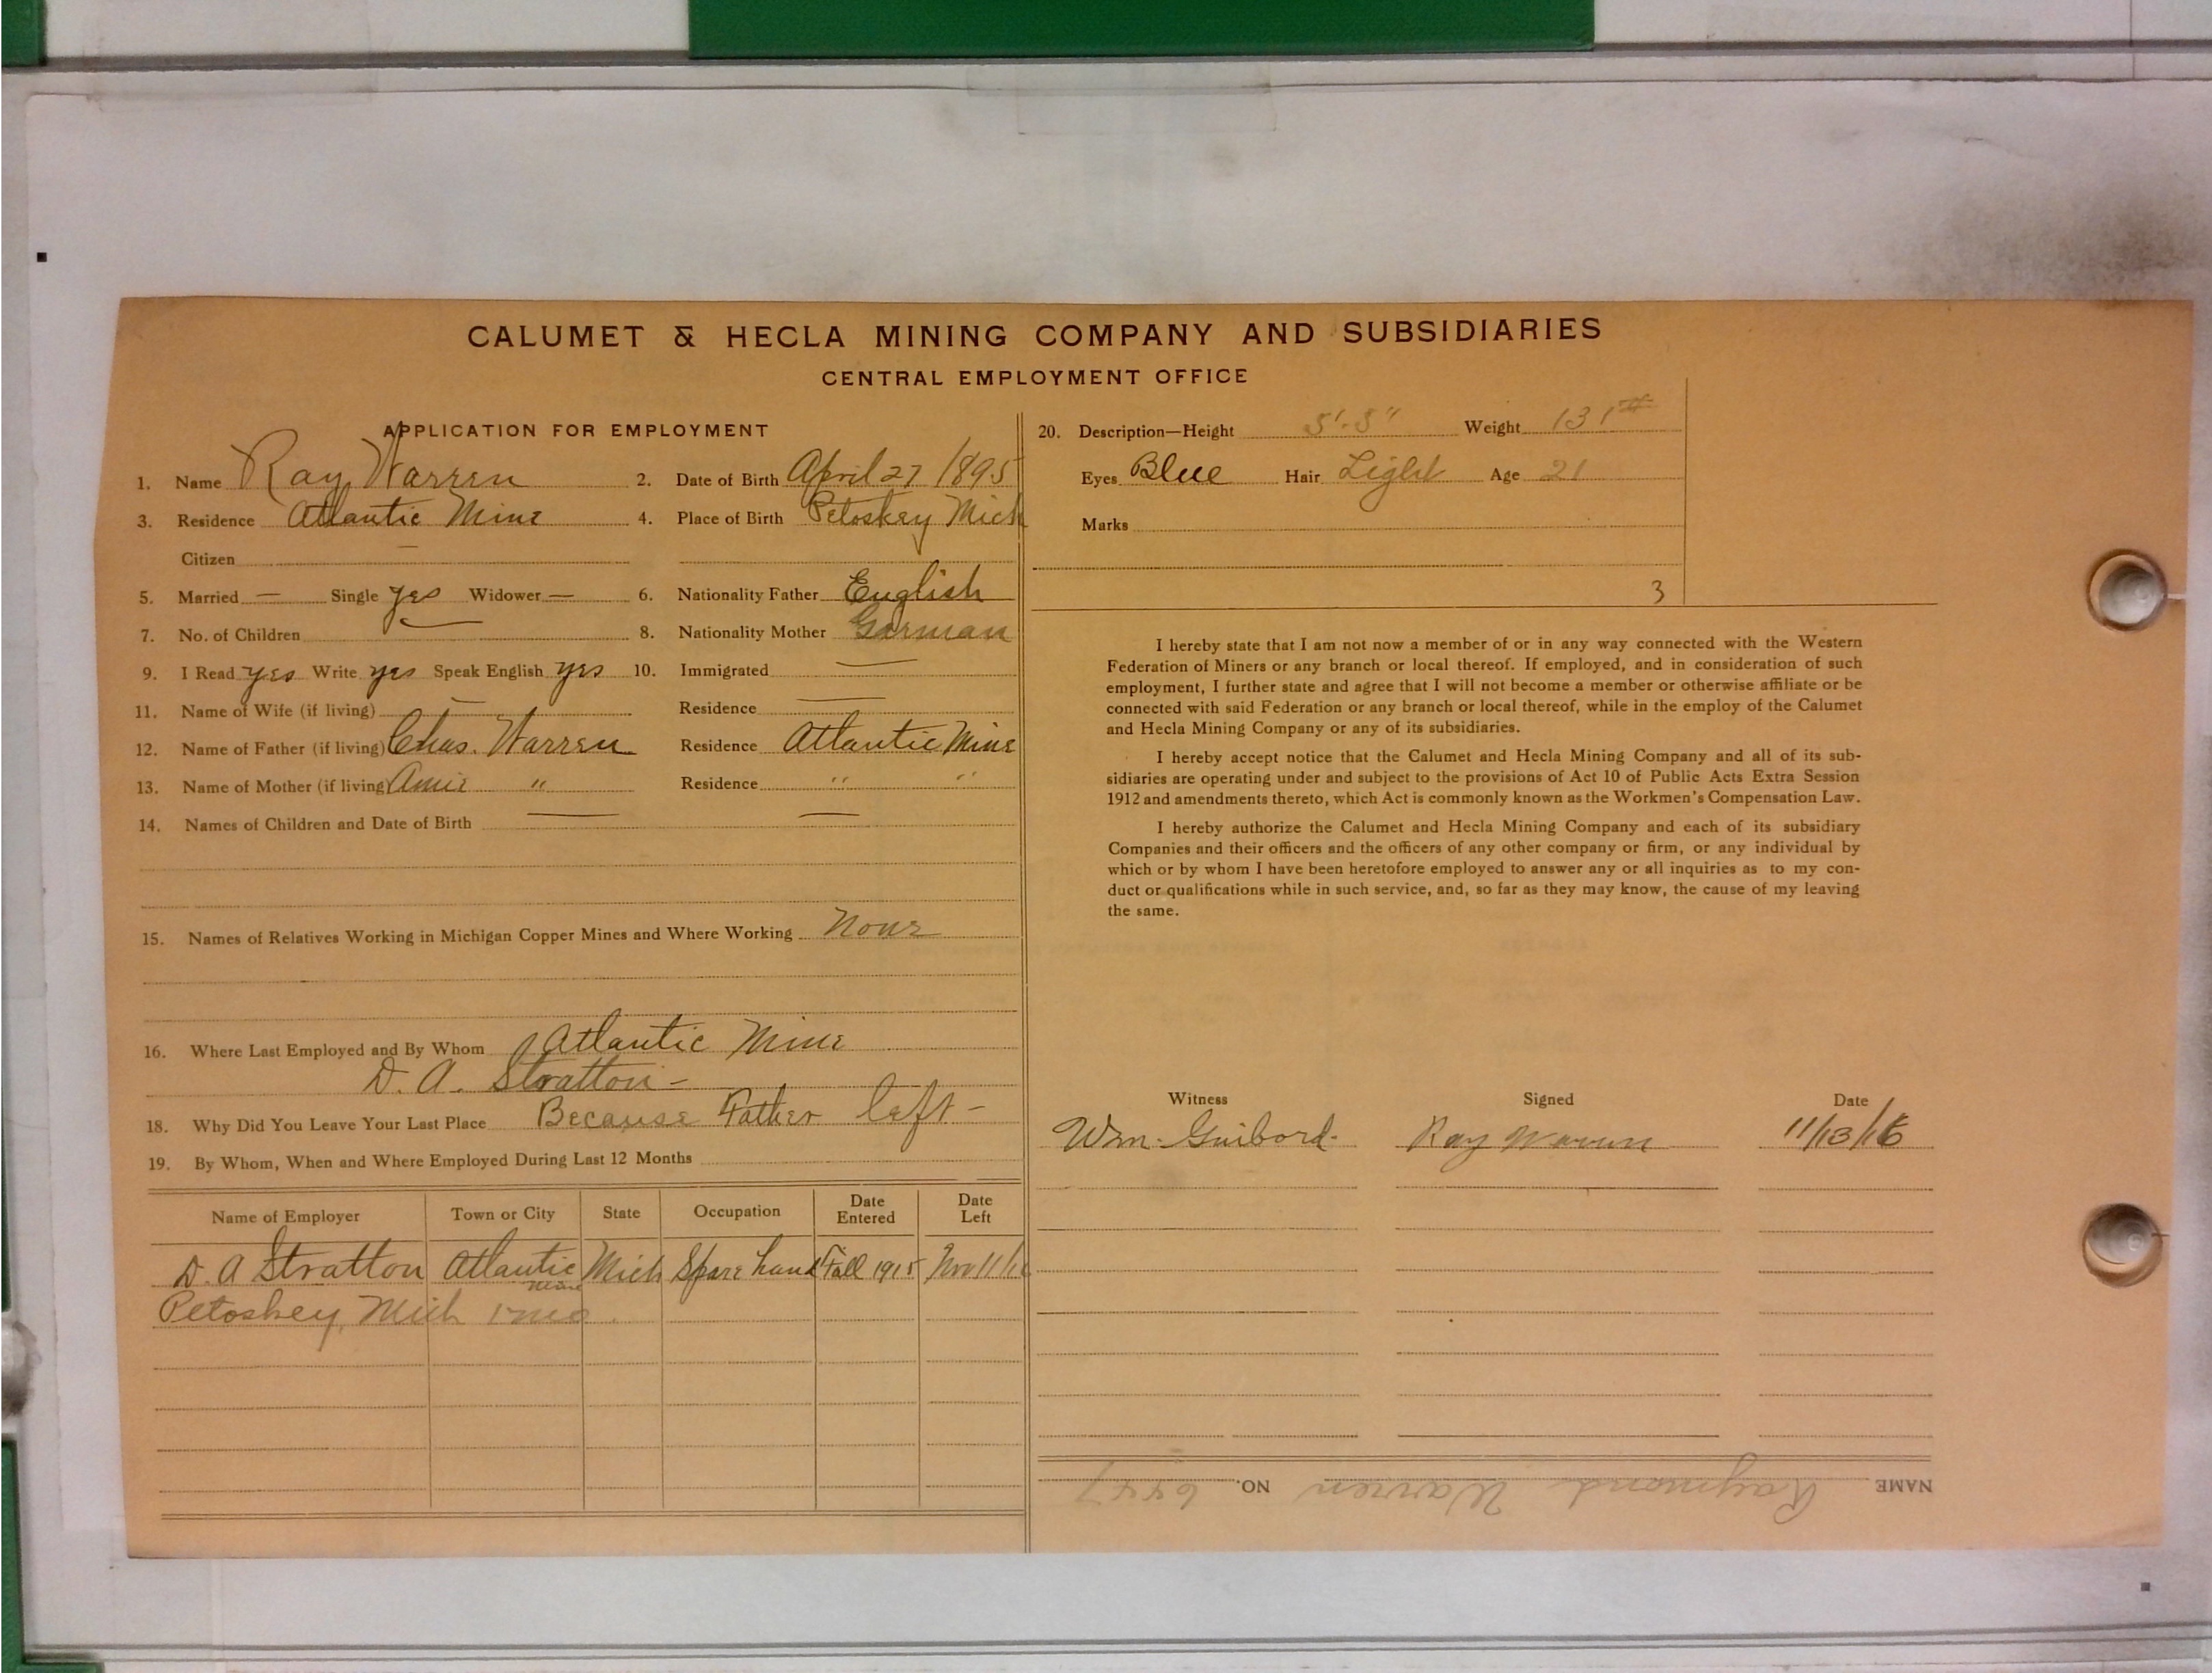 CALUMET & HECLA MINING COMPANY AND SUBSIDIARIES
CENTRAL EMPLOYMENT OFFICE
APPLICATION FOR EMPLOYMENT
1. Name Ray Warren 2. Date of Birth April 27 1895
3. Residence Atlantic Mine 4. Place of Birth Petoskey Mich
Citizen —
5. Married — Single yes Widower — 6. Nationality Father English
7. No. of Children — 8. Nationality Mother German
9. I Read yes Write yes Speak English yes 10. Immigrated —
11. Name of Wife (if living) — Residence —
12. Name of Father (if living) Chas. Warren Residence Atlantic Mine
13. Name of Mother (if living) Amie " Residence " "
14. Names of Children and Date of Birth — —
15. Names of Relatives Working in Michigan Copper Mines and Where Working None
16. Where Last Employed and By Whom Atlantic Mine
D. A. Stratton -
18. Why Did You Leave Your Last Place Because Father left -
19. By Whom, When and Where Employed During Last 12 Months
Name of Employer Town or City State Occupation Date Entered Date Left
D. A Stratton Atlantic Mine Mich Spare hand Fall 1915 Nov 11/16
Petoskey, Mich
20. Description—Height Weight 131#
Eyes Blue Hair Light Age 21
Marks
3
I hereby state that I am not now a member of or in any way connected with the Western
Federation of Miners or any branch or local thereof. If employed, and in consideration of such
employment, I further state and agree that I will not become a member or otherwise affiliate or be
connected with said Federation or any branch or local thereof, while in the employ of the Calumet
and Hecla Mining Company or any of its subsidiaries.
I hereby accept notice that the Calumet and Hecla Mining Company and all of its sub-
sidiaries are operating under and subject to the provisions of Act 10 of Public Acts Extra Session
1912 and amendments thereto, which Act is commonly known as the Workmen's Compensation Law.
I hereby authorize the Calumet and Hecla Mining Company and each of its subsidiary
Companies and their officers and the officers of any other company or firm, or any individual by
which or by whom I have been heretofore employed to answer any or all inquiries as to my con-
duct or qualifications while in such service, and, so far as they may know, the cause of my leaving
the same.
Witness Signed Date
Wm. Guibord. Ray Warren 11/13/16
NAME Raymond Warren NO.